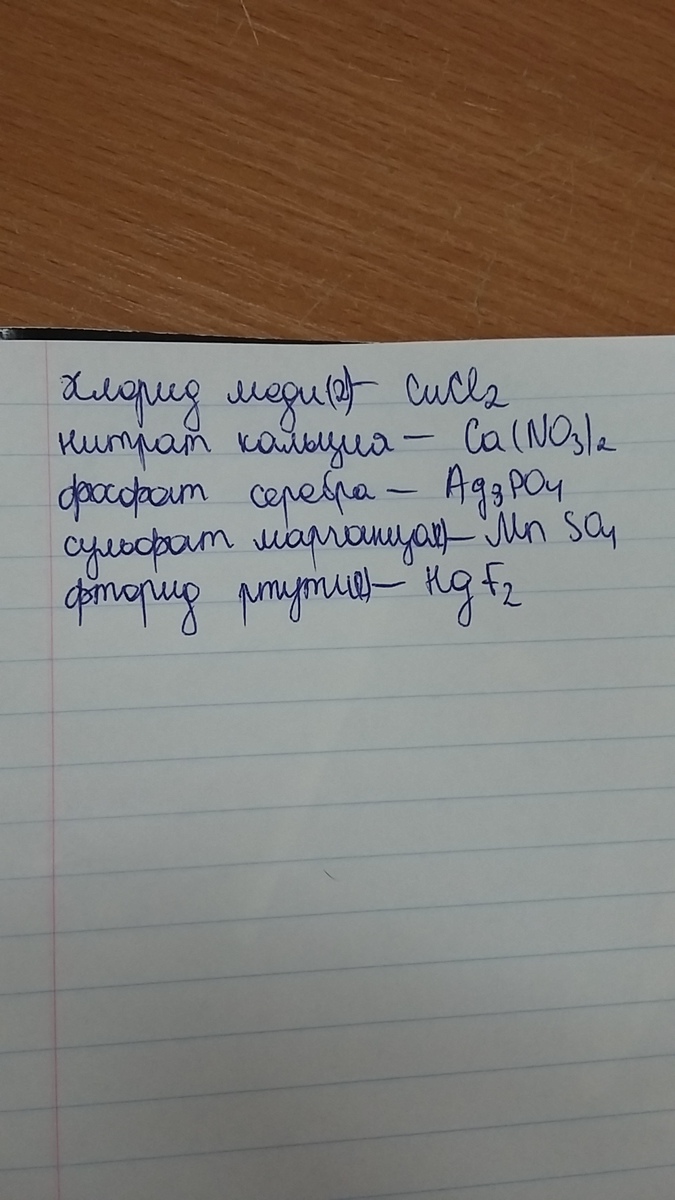 хлорид меди(2) – CuCl2
нитрат кальция – Ca(NO3)2
фосфат серебра – Ag3PO4
сульфат марганца(2) – Mn SO4
фторид ртути(2) – HgF2